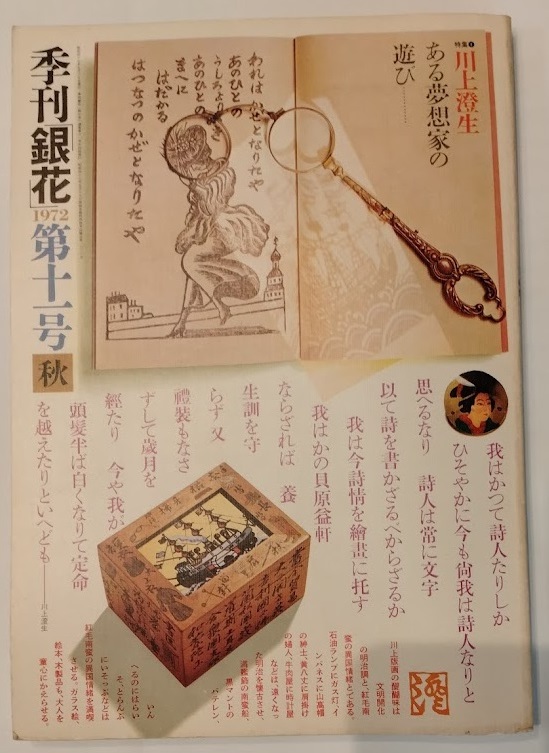 季刊「銀花」
1972
第十一号
秋
特集❶
川上澄生
ある夢想家の
遊び………
われは かぜとなりたや
あのひとの
うしろより
あのひとの
まへに
はだかる
はつなつの かぜとなりたや
我はかつて詩人たりしか
ひそやかに今も尙我は詩人なりと
思へるなり 詩人は常に文字
以て詩を書かざるべからざるか
我は今詩情を繪畫に托す
我はかの貝原益軒
ならざれば 養
生訓を守
らず 又
禮裝もなさ
ずして歲月を
經たり 今や我が
頭髮半ば白くなりて定命
を越えたりといへども――川上澄生
川上版画の醍醐味は
文明開化
の明治調と、紅毛南
蛮の異国情緒とである。
石油ランプにガス灯、イ
ンバネスに山高帽
の紳士、黄八丈に肩掛け
の婦人、牛肉屋に時計屋
などは、遠くなっ
た明治を懐古させ、
満艦飾の南蛮船、
黒マントの
バテレン、
いん
へるのにはらい
そ、とらんぷ
にいそっぷなどは
紅毛南蛮の異国情緒を満喫
させる。ガラス絵、
絵本、木製品も、大人を
童心にかえらせる。